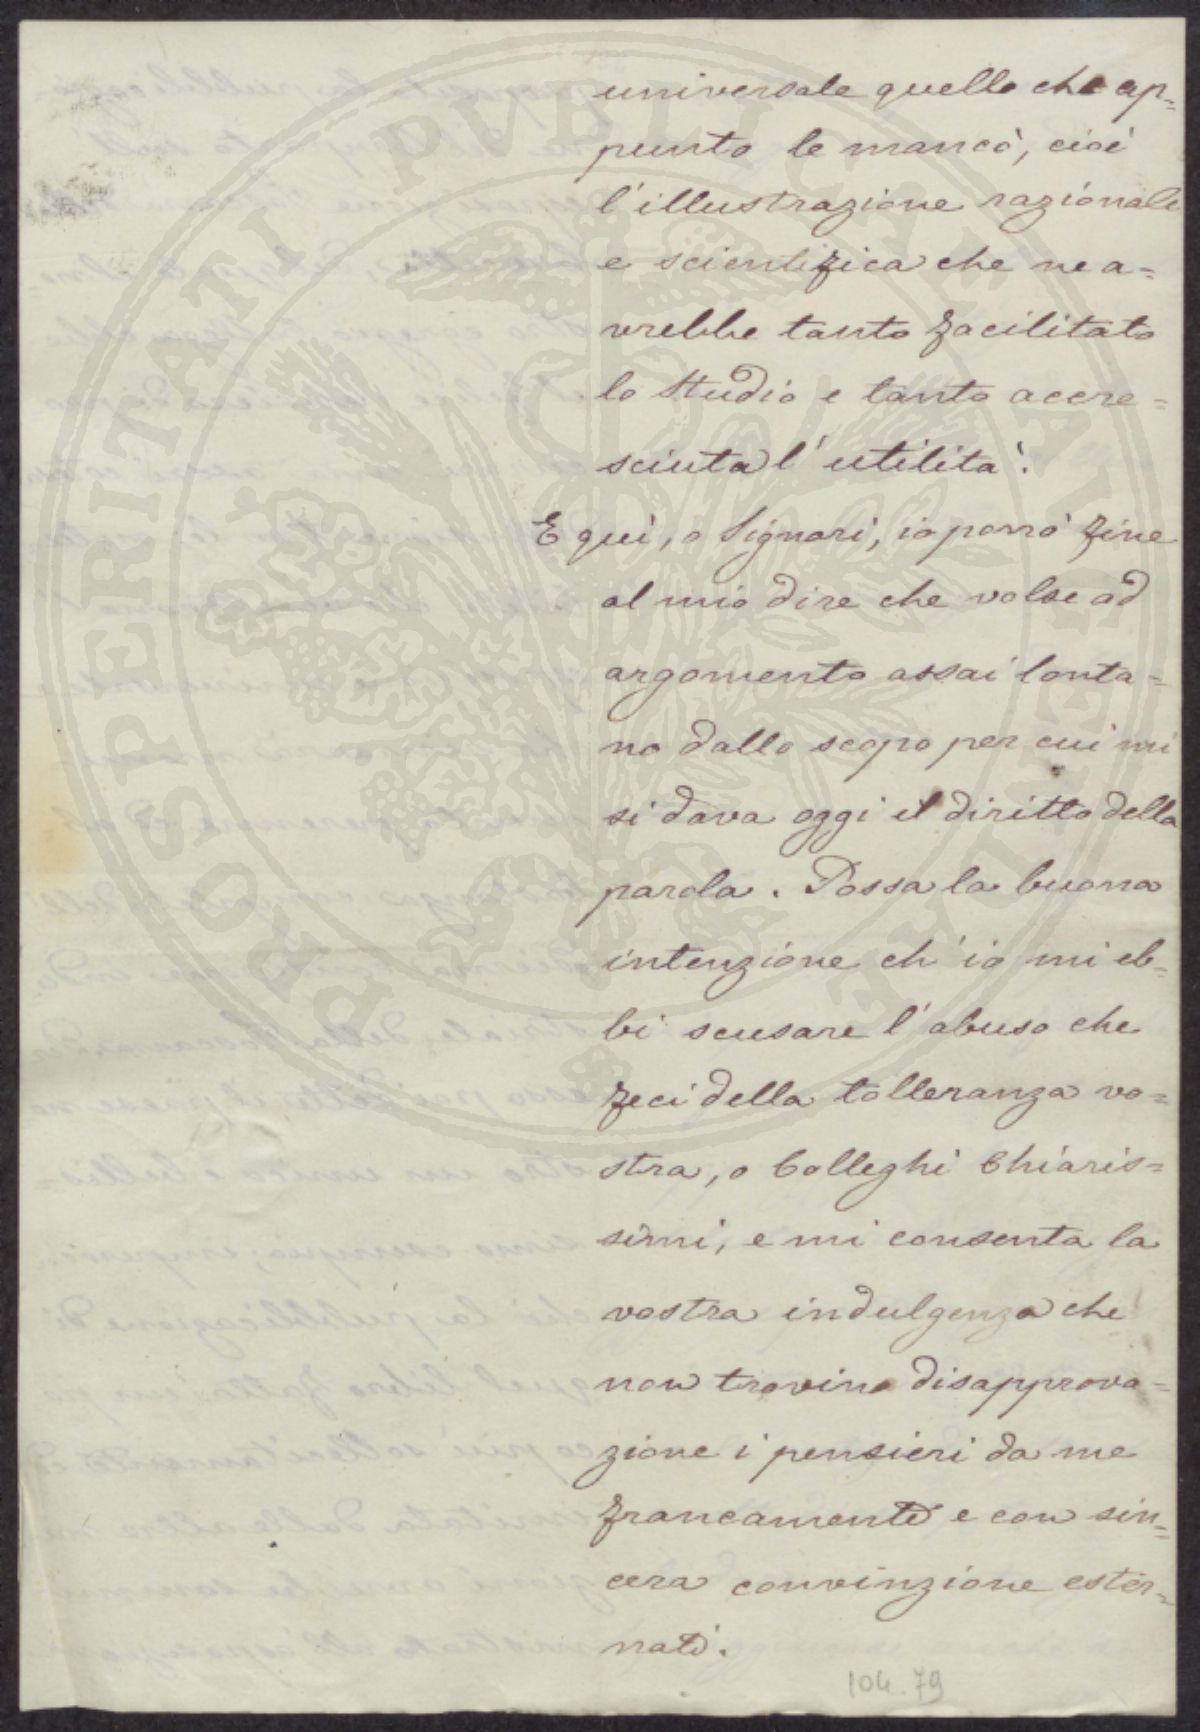 universale quello che ap=
punto le mancò, cioè
l'illustrazione razionale
e scientifica che ne a=
vrebbe tanto facilitato
lo studio e tanto accre=
sciuta l'utilità.
E quì, o Signori, io porrò fine
al mio dire che volse ad
argomento assai lonta=
no dallo scopo per cui mi
si dava oggi il diritto della
parola. Possa la buona
intenzione ch'io mi eb=
bi scusare l'abuso che
feci della tolleranza vo=
stra, o Colleghi Chiaris=
simi, e mi consenta la
vostra indulgenza che
non trovino disapprova=
zione i pensieri da me
francamente e con sin=
cera convinzione ester=
nati.
104.79
PROSPERITATI PVBLICAE AVGENDAE